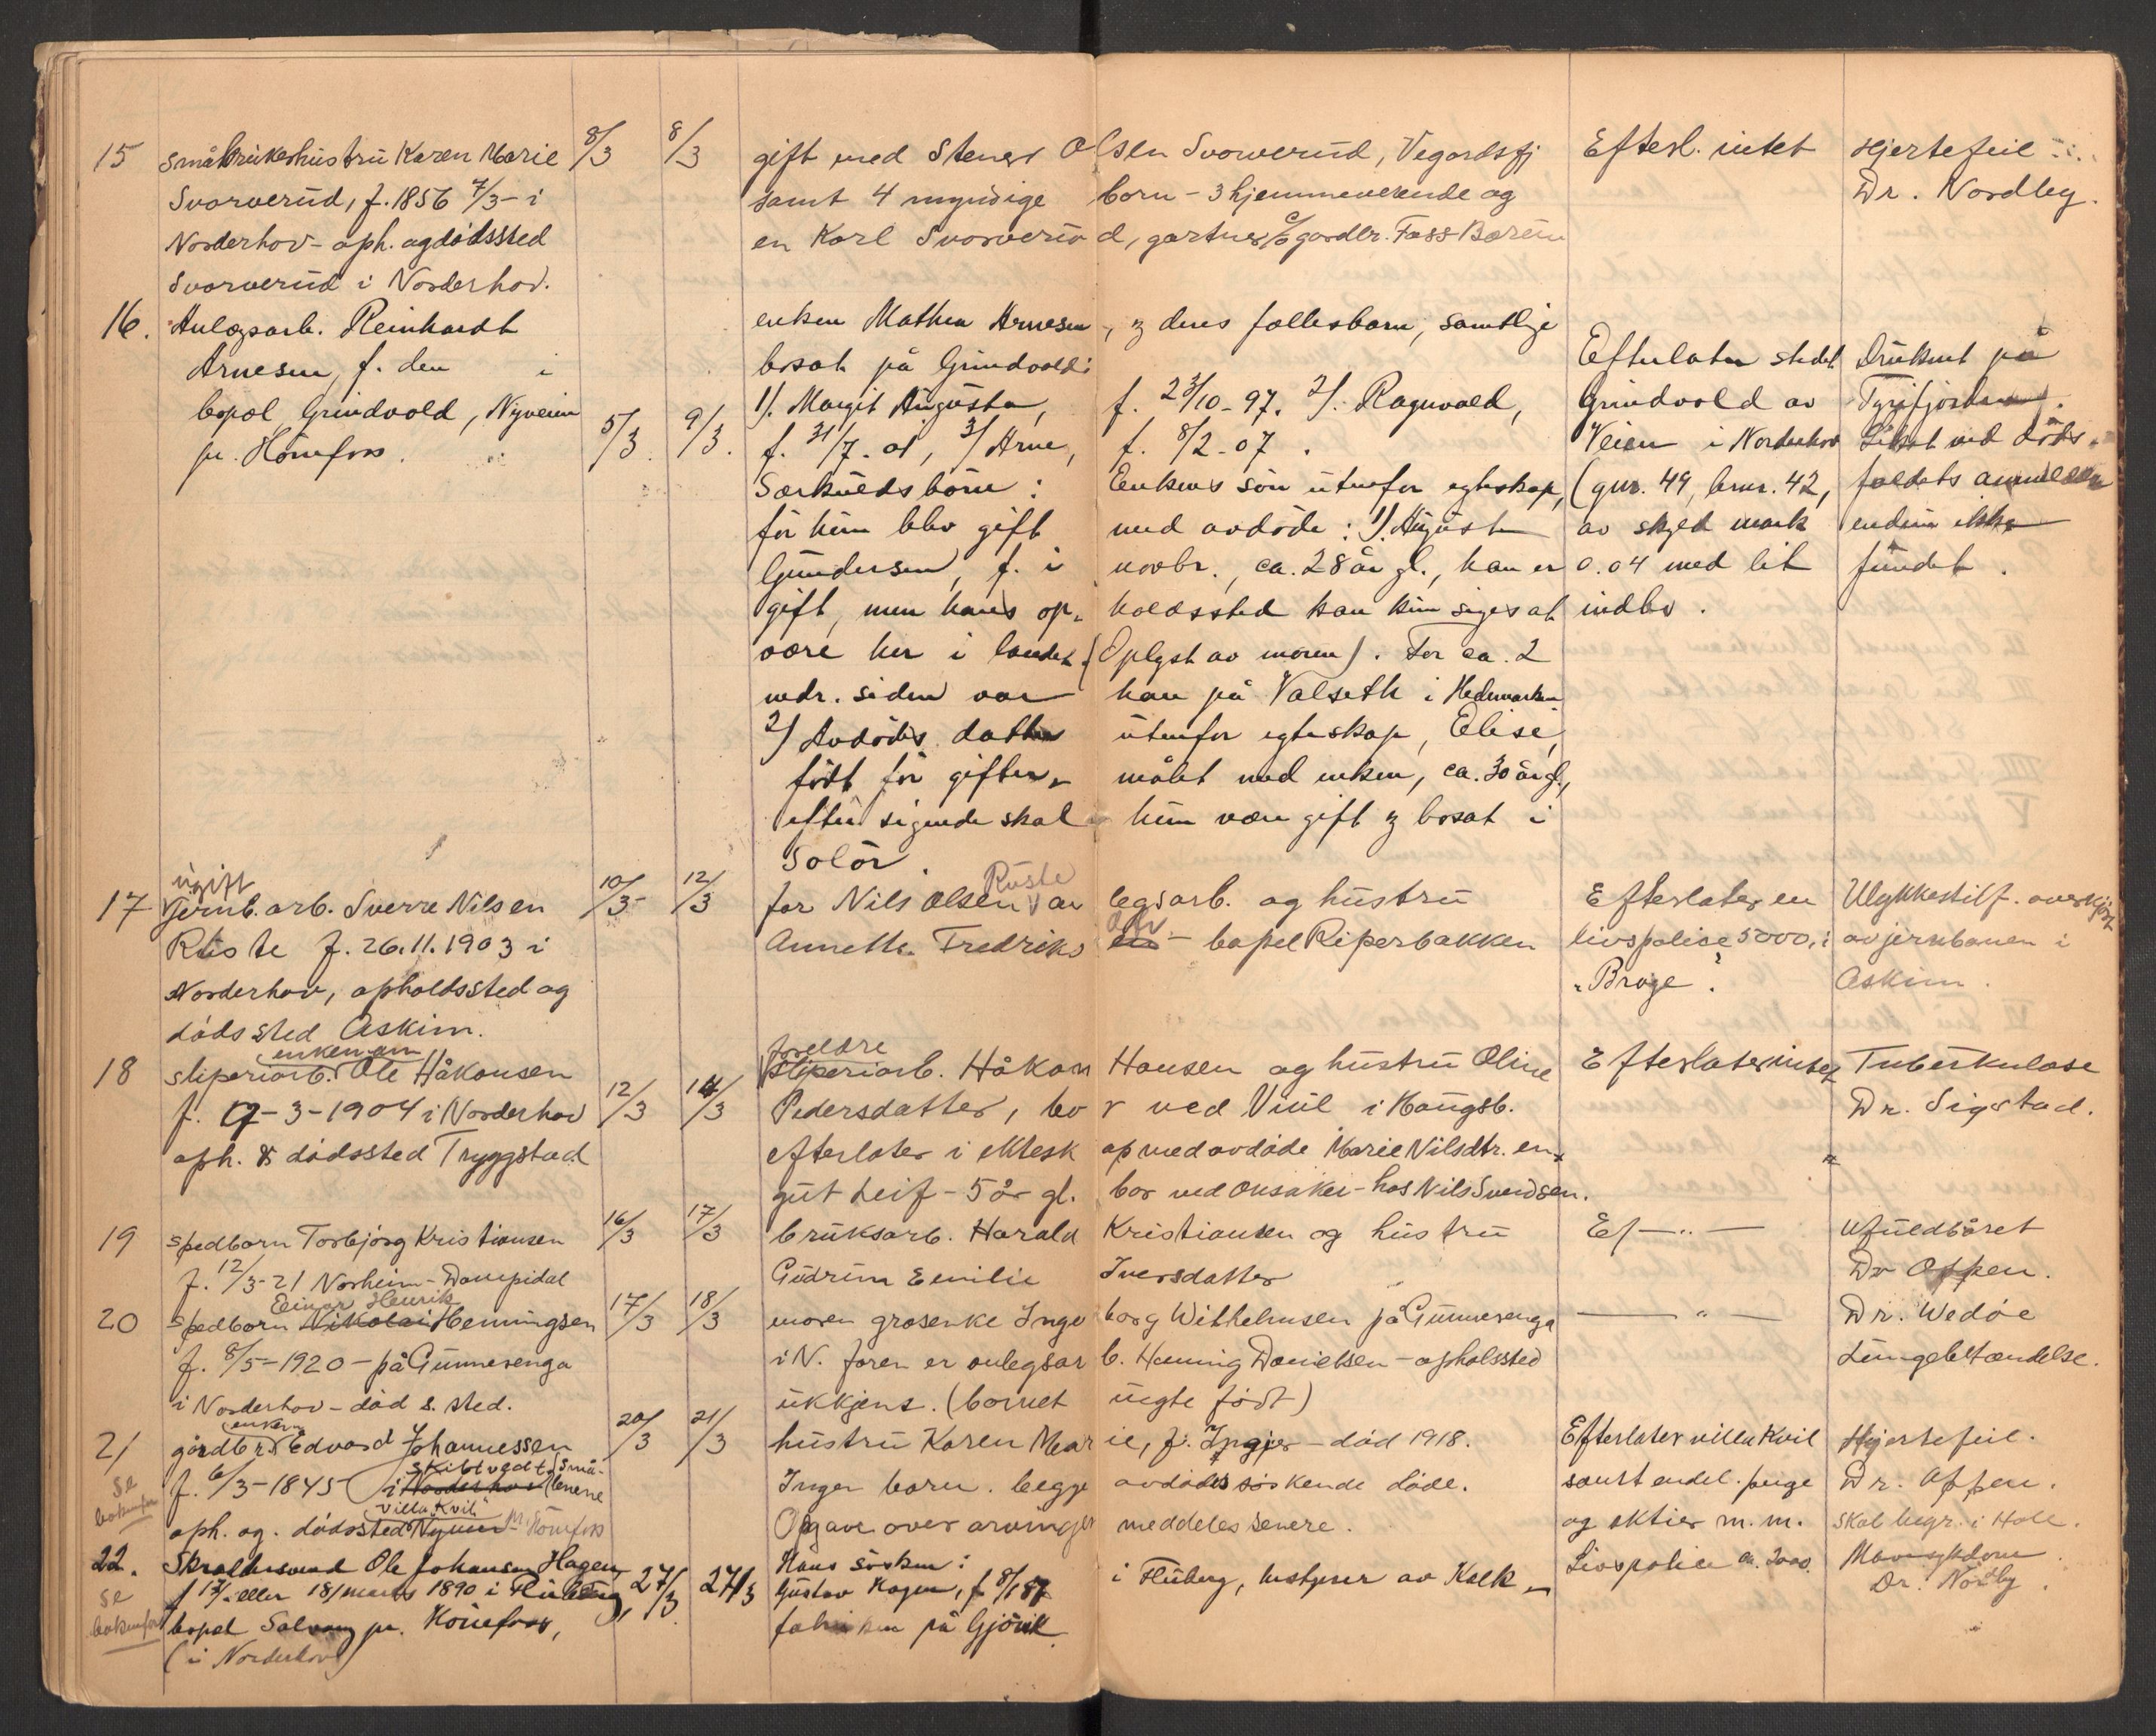 15 Småbrukerhustru Karen Marie 8/3 8/3 gift med Stener Olsen Svarverud, Vegårdsfj Efterl. intet Hjertefeil
Svarverud, f. 1856 7/3 - i samt 4 myndige born - 3 hjemmeverende og Dr. Nordby.
Norderhov - oph. og dødssted en Karl Svarverud, gartner gardbr. Foss Bærum
Svarverud i Norderhov.
16. Anlægsarb. Reinhardt enken Mathea Arnesen, og deres fællesbarn, samtlige
Arnesen, f. den i bosat på Grindvold: Efterlater stedet Druknet på
bopæl Grindvold, Nyveien 1/. Margit Augusta, f. 23/10-97. 2/. Ragnvald, Grindvold av Tyrifjorden.
pr. Hönefoss. 5/3. 9/3. f. 31/7-01, 3/ Arne, f. 8/2-07. Veien i Norderhov Liket ved döds-
Særkuldsbörn: Enkens sön utenfor egteskap, (gnr. 49, brnr. 42, faldets anmeldelse
för hun blev gift med avdöde: 1/. August av skyld mark endnu ikke
Gundersen, f. i novbr., ca. 28 år gl., han er 0.04 med lit fundet.
gift, men hans opholdssted kan kun siges at indbo.
være her i landet. (Oplyst av moren). For ca. 2
mdr. siden var han på Valseth i Hedemarken
2/ Avdödes datter utenfor egteskap, Elise,
född för giftermålet med enken, ca. 30 år gl.,
efter sigende skal hun være gift og bosat i
Solör.
ugift Ruste
17 Jernb. arb. Sverre Nilsen 10/3- 12/3 far Nils Olsen anlegsarb. og hustru Efterlater en Ulykkestilf. overkjørt
Ruste f. 26.11.1903 i Annette Fredriks - bopel Riperbakken livspolise 5000, i av jernbanen i
Norderhov, opholdssted og "Brage". Askim.
dødssted Askim.
enkeman foreldre
18 sliperiarb. Ole Håkonsen sliperiarb. Håkon Hansen og hustru Oline Efterlater intet Tuberkulose
f. 17-3-1904 i Norderhov 12/3 14/3 Pedersdatter, bor ved Viul i Haugsb. Dr. Sigstad.
oph. & dødssted Tryggstad efterlater i ektesk ap med avdøde Marie Nilsdtr. en
gut Leif - 5 år gl. bor ved Onsaker - hos Nils Svendsen.
19 spedbarn Torbjørg Kristiansen 16/3 17/3 bruksarb. Harald Kristiansen og hustru Ef — " — Ufuldbåret
f. 12/3-21 Norheim - Gudrun Emilie Iversdatter Dr Oppen.
Einar Henrik
20 spedbarn Nikolai Henningsen 17/3 18/3 moren grosenke Ingeborg Wilhelmsen på Gummerenga — " — Dr. Wedøe
f. 8/5-1920 - på Gummerenga i N. faren er anlegsarb. Henning Danielsen - opholssted Lungebetændelse.
i Norderhov - død s. sted. ukkjent. (barnet uegte født)
enkem.
21 gårdbr. Edvard Johannessen 20/3 21/3 hustru Karen Marie, f. - død 1918. Efterlater villa Kvil Hjertefeil.
se f. 6/3-1845 i Norderhov Skibtvedt, Små- lenene Ingen barn. begge avdødes søskende døde. samt endel penge Dr. Oppen.
bakenfor oph. og dødssted Villa "Kvil" pr. Hönefoss Opgave over arvinger meddeles senere. og aktier m.m. skal begr. i Hole.
22. Ole Johansen Hagen, Hans søsken: Livspolice ca. 2000. Mavesykdom
se f. 17/. eller 18/ marts 1890 i Fluberg, 27/3 27/3 Gustav Hagen, f. 8/1 87 i Fluberg, bestyrer av Kalk- Dr. Nordby.
bakenfor bopæl Solvang pr. Hönefoss, fabriken på Gjövik.
(i Norderhov)